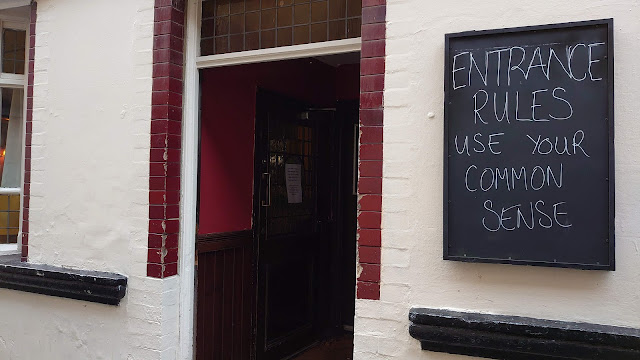 ENTRANCE
RULES
USE YOUR
COMMON
SENSE